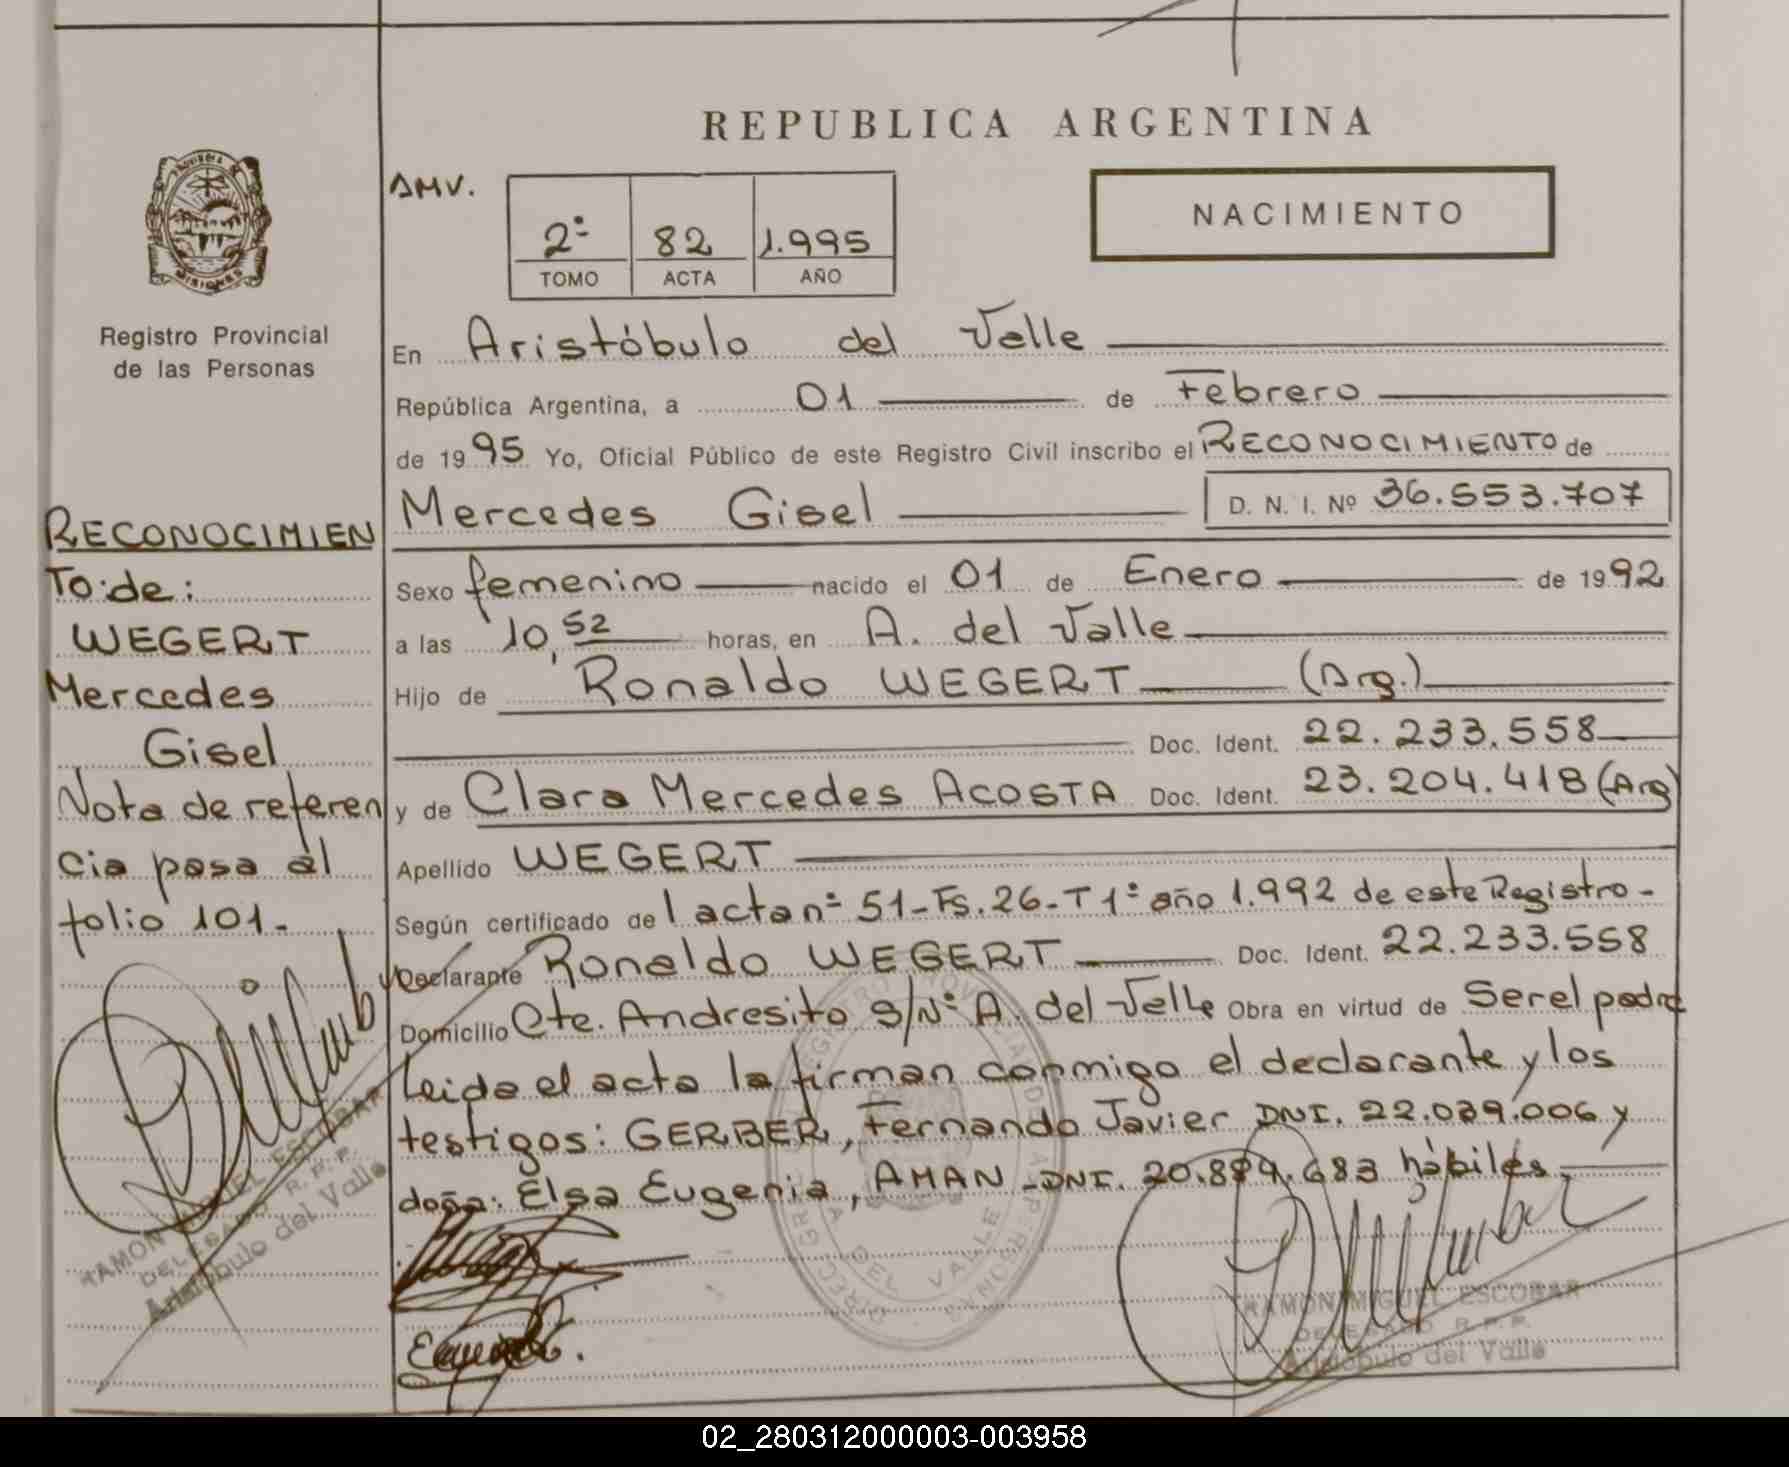 REPUBLICA ARGENTINA
AMV.
2º 82 1.995
TOMO ACTA AÑO
NACIMIENTO
PROVINCIA
MISIONES
Registro Provincial
de las Personas
RECONOCIMIEN
To:de:
WEGERT
Mercedes
Gisel
Nota de referen
cia pasa al
folio 101.-
RAMON MIGUEL ESCOBAR
DELEGADO R.P.P.
Aristóbulo del Valle
En Aristóbulo del Valle
República Argentina, a 01 de Febrero
de 1995 Yo, Oficial Público de este Registro Civil inscribo el RECONOCIMIENTO de
Mercedes Gisel D. N. I. Nº 36.553.707
Sexo femenino nacido el 01 de Enero de 1992
a las 10,52 horas, en A. del Valle
Hijo de Ronaldo WEGERT (Arg.)
Doc. Ident. 22.233.558
y de Clara Mercedes ACOSTA Doc. Ident. 23.204.418 (Arg)
Apellido WEGERT
Según certificado de l acta nº 51-Fs.26-T1º año 1.992 de este Registro-
Declarante Ronaldo WEGERT Doc. Ident. 22.233.558
Domicilio Cte. Andresito S/Nº A. del Valle Obra en virtud de Ser el padre
Leida el acta la firman conmigo el declarante y los
testigos: GERBER, Fernando Javier DNI. 22.039.006 y
doña: Elsa Eugenia, AMAN -DNI. hábiles.
DEL VALLE
RAMON MIGUEL ESCOBAR
DELEGADO R.P.P.
Aristóbulo del Valle
02_280312000003-003958